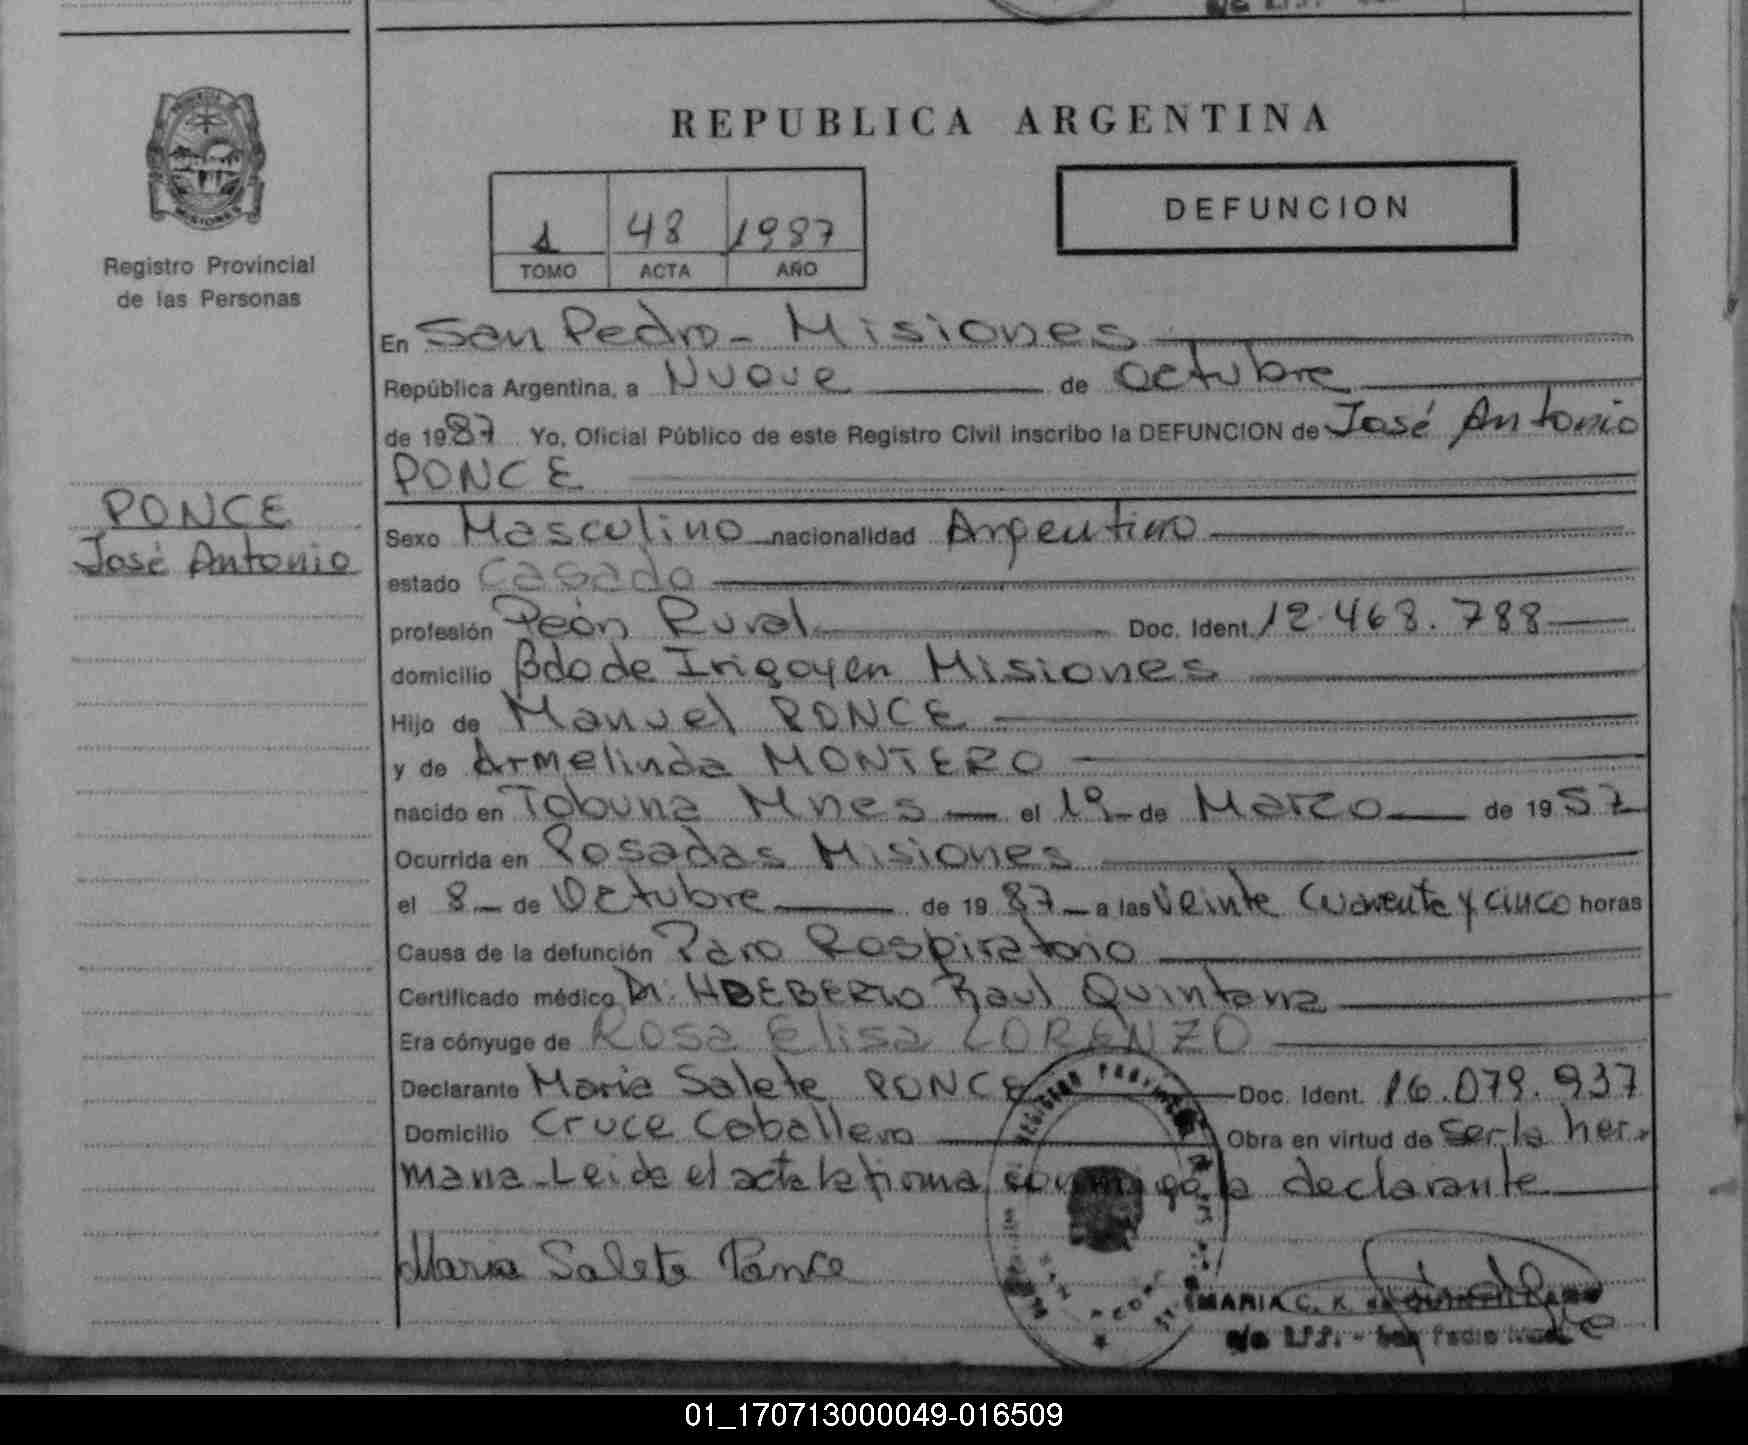 REPUBLICA ARGENTINA
1 48 1987
TOMO ACTA AÑO
DEFUNCION
MISIONES
Registro Provincial
de las Personas
PONCE
José Antonio
En San Pedro - Misiones
República Argentina, a Nueve de Octubre
de 1987 Yo, Oficial Público de este Registro Civil inscribo la DEFUNCION de José Antonio
PONCE
Sexo Masculino nacionalidad Argentino
estado Casado
profesión Peón Rural Doc. Ident. 12.468.788
domicilio Bdo de Irigoyen Misiones
Hijo de Manuel PONCE
y de Armelinda MONTERO
nacido en Tobuna Mnes el 19 de Marzo de 1957
Ocurrida en Posadas Misiones
el 8 de Octubre de 1987 a las Veinte Cuarenta y cinco horas
Causa de la defunción Paro Respiratorio
Certificado médico Dr. Raul Quintana
Era cónyuge de Rosa Elisa LORENZO
Declarante Maria Salete PONCE Doc. Ident. 16.079.937
Domicilio Cruce Caballero Obra en virtud de Ser la her-
mana - Leida el acta la firma conmigo la declarante
Maria Salete Ponce
MARIA C. K. de
San Pedro
01_170713000049-016509